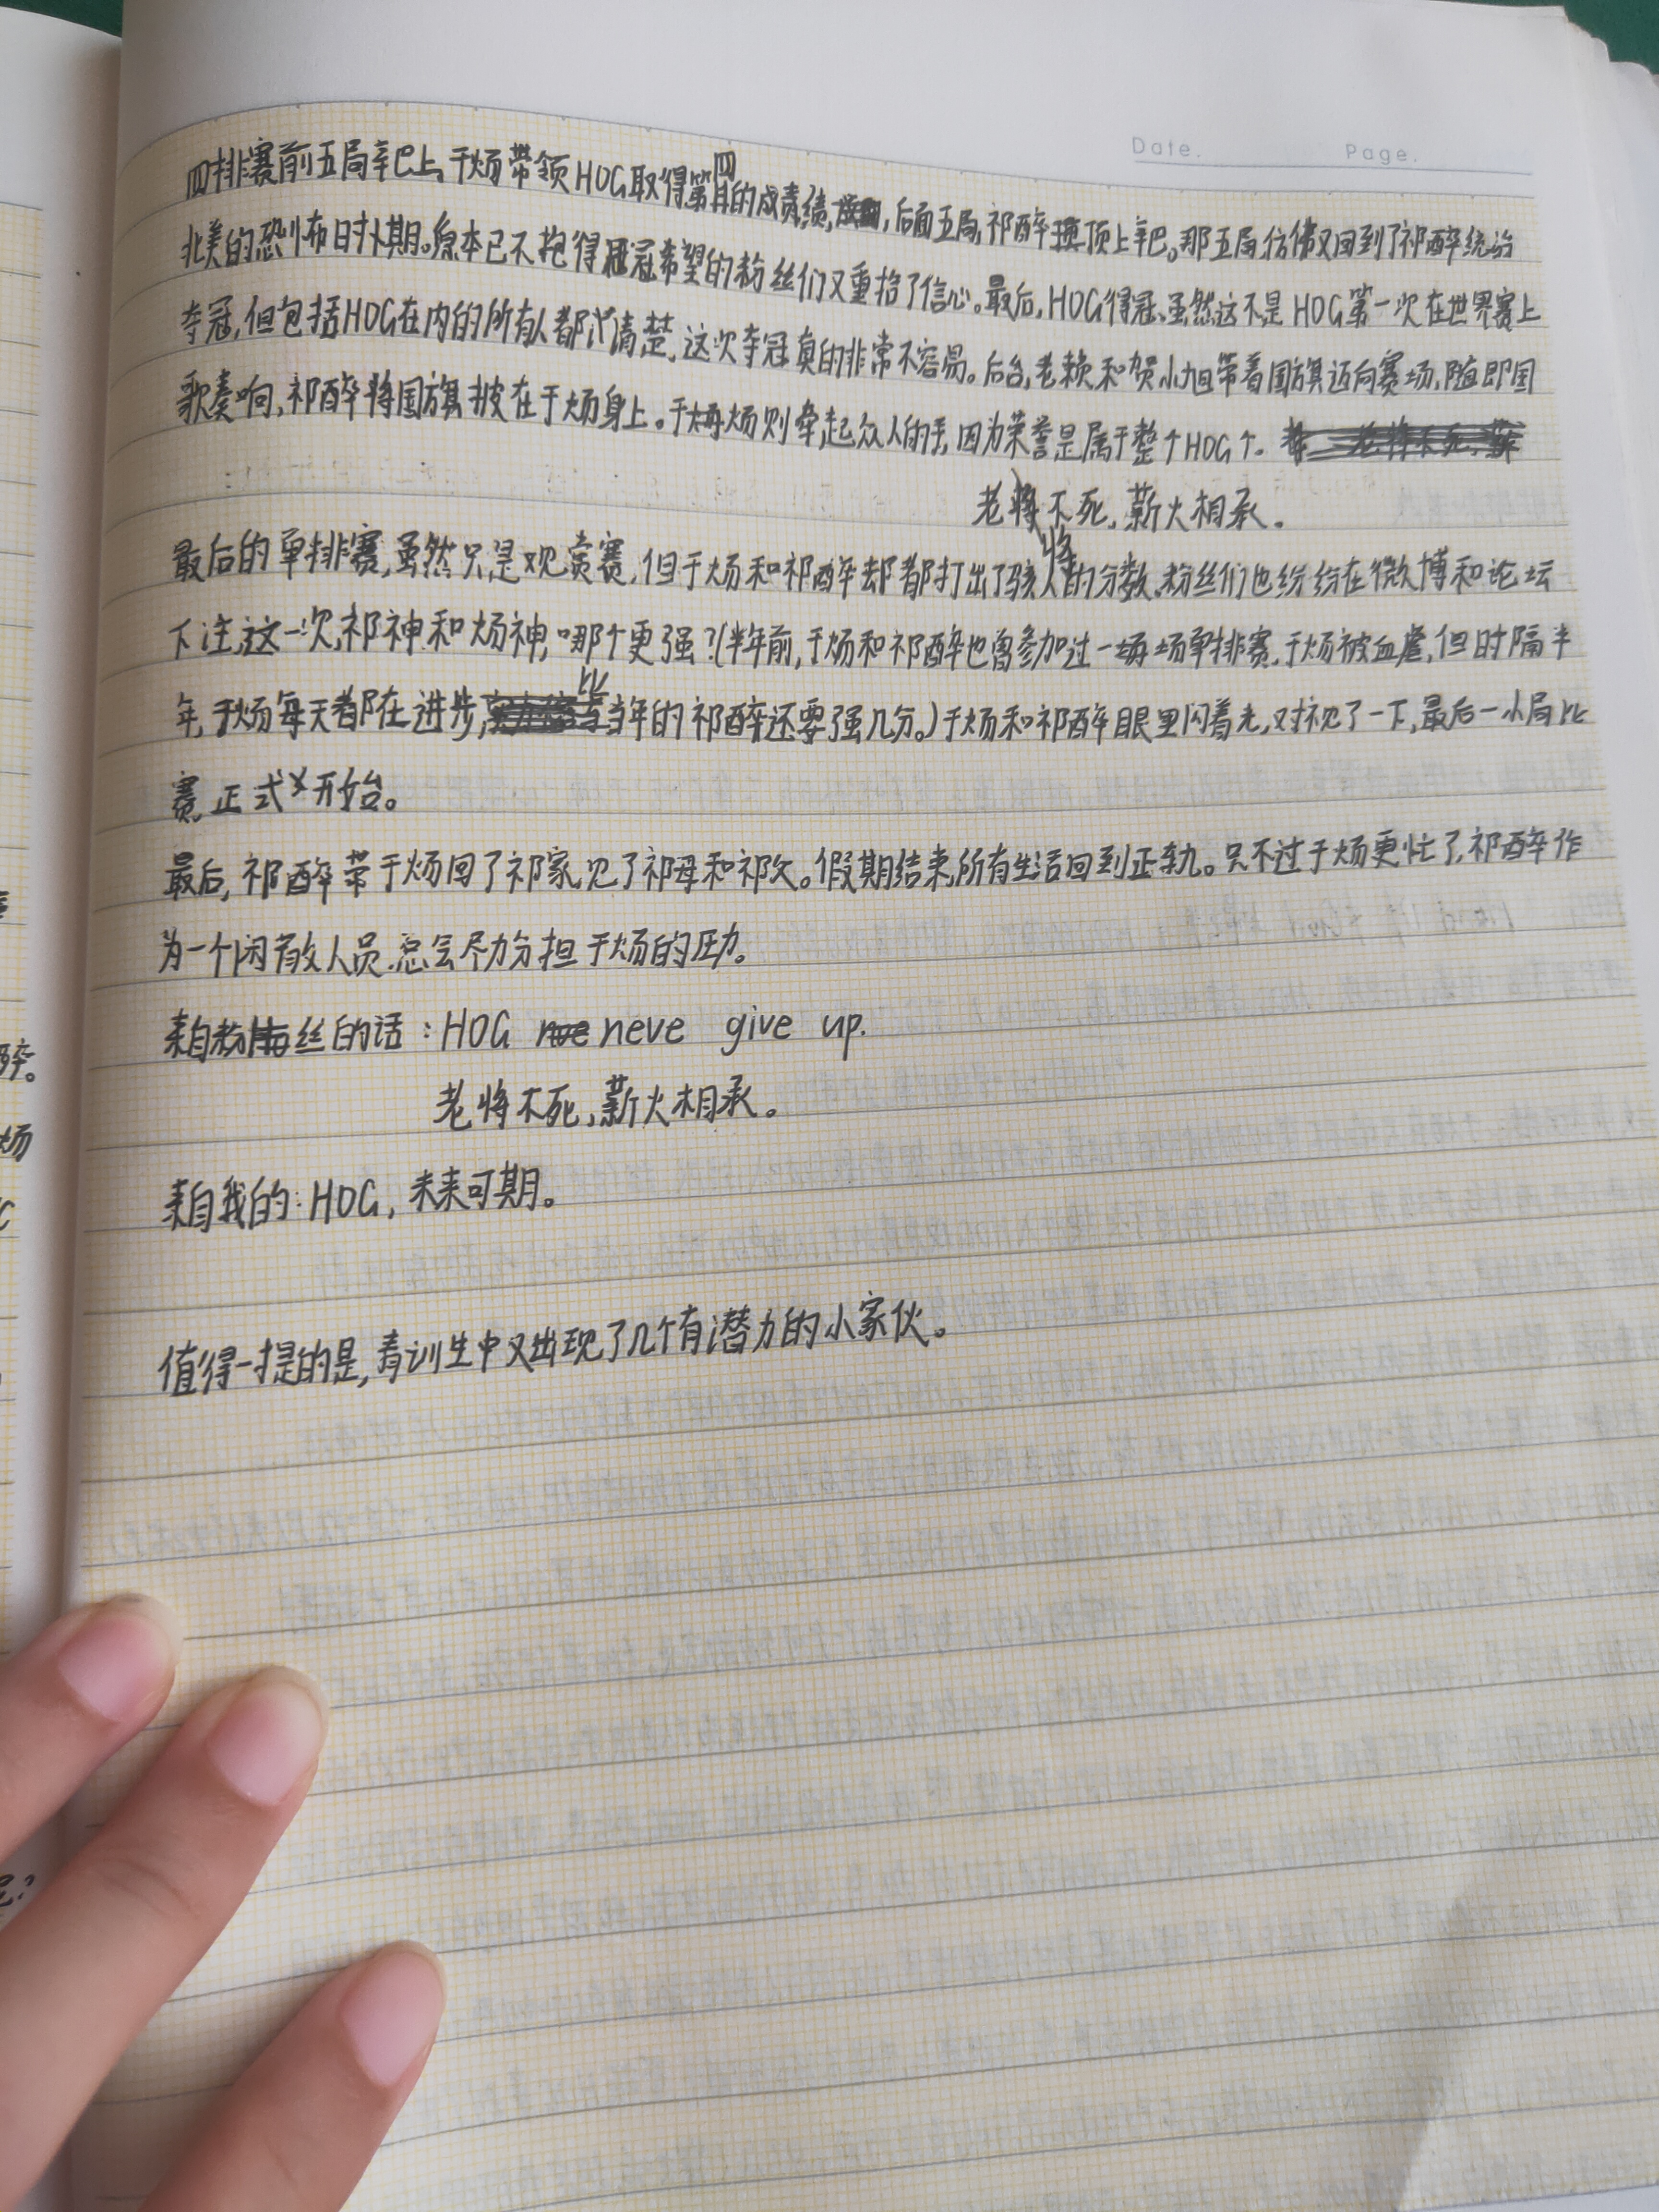 Date. Page.
四排赛前五局辛巴上,于炀带领HOG取得第四的成绩,后面五局,祁醉顶上辛巴。那五局,仿佛又回到了祁醉统治
北美的恐怖时期。原本已不抱得冠希望的粉丝们又重拾了信心。最后,HOG得冠、虽然这不是HOG第一次在世界赛上
夺冠,但包括HOG在内的所有人都清楚,这次夺冠真的非常不容易。后台,老赖和贺小旭带着国旗迈向赛场,随即国
歌奏响,祁醉将国旗披在于炀身上。于炀则牵起众人的手,因为荣誉是属于整个HOG个。
老将不死,薪火相承。
最后的单排赛,虽然只是观赏赛,但于炀和祁醉却都打出了骇人的分数,粉丝们也纷纷在微博和论坛
下注,这一次,祁神和炀神,哪个更强?(半年前,于炀和祁醉也曾参加过一场单排赛,于炀被血虐,但时隔半
年,于炀每天都在进步,比当年的祁醉还要强几分。)于炀和祁醉眼里闪着光,对视了一下,最后一小局比
赛,正式开始。
最后,祁醉带于炀回了祁家,见了祁母和祁父。假期结束,所有生活回到正轨。只不过于炀更忙了,祁醉作
为一个闲散人员,总会尽力分担于炀的压力。
来自粉丝的话:HOG neve give up.
老将不死,薪火相承。
来自我的:HOG,未来可期。
值得一提的是,青训生中又出现了几个有潜力的小家伙。